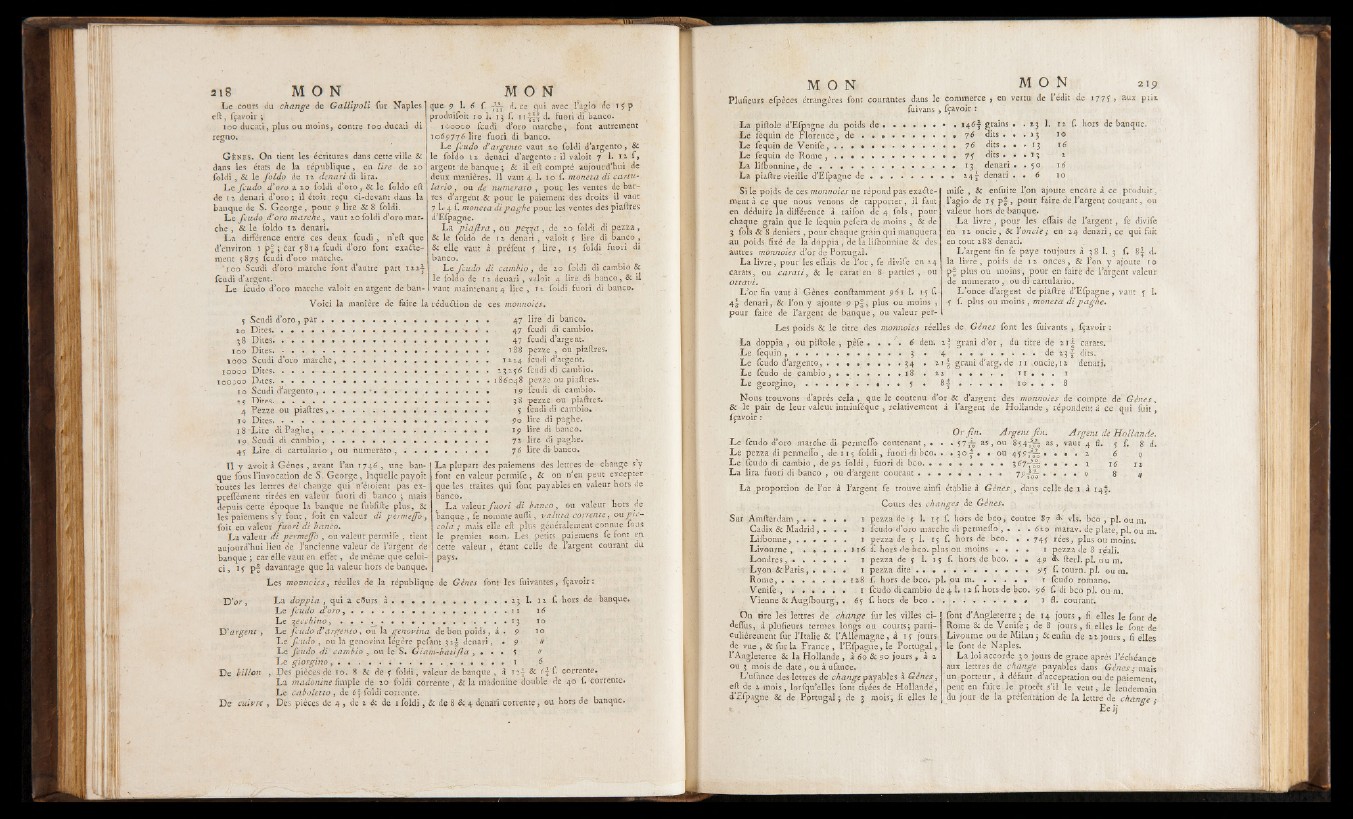 218 MON MON
Le cours du change de Gallipoli sur Naples
est, sçavoir ;
100 ducati, plus ou moins, contre 100 ducati di
regno.
GÈNES. On tient les écritures dans cette ville &
dans les états de la république, en lire de 20
soldi, & le soldo de 12 denari di lira.
Le scudo d'oro a 20 soldi d'oro, & le soldo est
de 12 denari d'oro : il étoit reçu ci-devant dans la
banque de S. George, pour 9 lire & 8 soldi.
Le scudo d'oro marche, vaut 20 soldi d'oro mar-
che, & le soldo 12 denari.
La différence entre ces deux scudi, n'est que
d'environ 1 p° ; car 5814 scudi d'oro font exacte-
ment 5875 scudi d'oro marche.
100 Scudi d'oro marche font d'autre part 122
scudi d'argent.
Le scudo d'oro marche valoit en argent de ban-
que 9 l. 6 s. d. ce qui avec l'agio de 15 p
produisoit 10 l. 13 s. d. fuori di banco.
100000 scudi d'oro marche, font autrement
1069776 lire fuori di banco.
Le scudo d'argento vaut 20 soldi d'argento, &
le soldo 12 denari d'argento : il valoit 7 l. 12 s,
argent de banque ; & il est compté aujourd'hui de
deux manières. Il vaut 4 l. 10 s. moneta di cartu-
lario, ou de numerato, pour les ventes de bar-
res d'argent & pour le paiement des droits il vaut
7 l. 4 s. moneta di paghe pour les ventes des piastres
d'Espagne.
La piastra, ou pezza, de 20 soldi di pezza,
& le soldo de 12 denari, valoit 5 lire di banco,
& elle vaut à présent 5 lire, 15 soldi fuori di
banco.
Le scudo di cambio, de 20 soldi di cambio &
le soldo de 12 denari, valoit 4 lire di banco, & il
vaut maintenant 4 lire, 12 soldi fuori di banco.
Voici la manière de faire la réduction de ces monnoies.
5 Scudi d'oro, par . . . . . 47 lire di banco.
20 Dites. . . . . . 47 scudi di cambio.
38 Dites. . . . . . 47 scudi d'argent.
100 Dites. . . . . . 188 pezze, ou piastres.
1000 Scudi d'oro marche, . . . . . 1224 scudi d'argent.
10000 Dites. . . . . . 23256 scudi di cambio.
100000 Dites. . . . . . 186048 pezze ou piastres.
10 Scudi d'argento, . . . . . 19 scudi di cambio.
25 Dites. . . . . . 38 pezze ou piastres.
4 Pezze ou piastres, . . . . . 5 scudi di cambio.
10 Dites. . . . . . 90 lire di paghe.
18 Lire di Paghe, . . . . . 19 lire di banco.
19 Scudi di cambio, . . . . . 72 lire di paghe.
45 Lire di cartulario, ou numerato, . . . . . 76 lire di banco.
Il y avoit à Gènes, avant l'an 1746, une ban-
que sous l'invocation de S. George, laquelle payoit
toutes les lettres de change qui n'étoient pas ex-
pressément tirées en valeur fuori di banco ; mais
depuis cette époque la banque ne subsiste plus, &
les paiemens s'y font, soit en valeur di permesso,
soit en valeur fuori di banco.
La valeur di permesso, ou valeur permise, tient
aujourd'hui lieu de l'ancienne valeur de l'argent de
banque ; car elle vaut en effet, de même que celui-
ci, 15 p° davantage que la valeur hors de banque.
La plupart des paiemens des lettres de change s'y
font en valeur permise, & on n'en peut excepter
que les traites qui sont payables en valeur hors de
banco.
La valeur fuori di banco, ou valeur hors de
banque, se nomme aussi, valuta corrente, ou pic-
cola ; mais elle est plus généralement connue sous
le premier nom. Les petits paiemens se font en
cette valeur, étant celle de l'argent courant du
pays.
Les monnoies, réelles de la république de Gènes sont les suivantes, sçavoir :
D'or, La doppia, qui a cours à . . . . . 23 l. 12 s. hors de banque.
Le scudo d'oro, . . . . . 11 16
Le zecchino, . . . . . 13 10
D'argent, Le scudo d'argento, ou la genovina de bon poids, à . 9 10
Le scudo, ou la genovina légère pesant denari, . 9 "
Le scudo di cambio, ou le S. Giam-batista, . . . 5 "
Le giorgino, . . . . . 1 6
De billon, Des pièces de 10, 8 & de 5 soldi, valeur de banque, à & s. corrente.
La madonine simple de 20 soldi corrente, & la madonine double de 40 s. corrente.
Le caboletto, de soldi corrente.
De cuivre, Des pièces de 4, de 2 & de 1 soldi, & de 8 & 4 denari corrente, ou hors de banque.
MON MON 219
Plusieurs espèces étrangères sont courantes dans le commerce, en vertu de l'édit de 1775, aux prix
suivans, sçavoir :
La pistole d'Espagne du poids de . . . . . grains . . 23 l. 12 s. hors de banque.
Le sequin de Florence, de . . . . . 76 dits . . . 13 10
Le sequin de Venise, . . . . . 76 dits . . . 13 16
Le sequin de Rome, . . . . . 75 dits . . . 13 2
La lisbonnine, de . . . . . 13 denari . . 50 16
La piastre vieille d'Espagne de . . . . . denari . . 6 10
Si le poids de ces monnoies ne répond pas exacte-
ment à ce que nous venons de rapporter, il faut
en déduire la différence à raison de 4 sols, pour
chaque grain que le sequin pesera de moins, & de
3 sols & 8 deniers, pour chaque grain qui manquera
au poids fixé de la doppia, de la lisbonnine & des
autres monnoies d'or de Portugal.
La livre, pour les essais de l'or, se divise en 24
carats, ou carati, & le carat en 8 parties, ou
ottavi.
L'or fin vaut à Gènes constamment 961 l. 15 s.
denari, & l'on y ajoute 9 p°, plus ou moins,
pour faire de l'argent de banque, ou valeur per-
mise, & ensuite l'on ajoute encore à ce produit,
l'agio de 15 p°, pour faire de l'argent courant, ou
valeur hors de banque.
La livre, pour les essais de l'argent, se divise
en 12 oncie, & l'oncie ; en 24 denari, ce qui fait
en tout 288 denari.
L'argent fin se paye toujours à 38 l. 3 s. d.
la livre, pour de 12 onces, & l'on y ajoute 10
p° plus ou moins, pour en faire de l'argent valeur
de numerato, ou di cartulario.
L'once d'argent de piastre d'Espagne, vaut 5 l.
5 s. plus ou moins, moneta di paghe.
Les poids & le titre des monnoies réelles de Gènes sont les suivants, sçavoir :
La doppia, ou pistole, pèse . . . . 6 den. grani d'or, du titre de carats.
Le sequin, . . . . . 3 . 4 . . . . . de dits.
Le scudo d'argento, . . . . . 34 . grani d'arg. de 11 oncie, 12 denari.
Le scudo de cambio, . . . . . 18 . 22 . . . . . 11 . . . 1
Le georgino, . . . . . 5 . . . . . . 10 . . . 8
Nous trouvons d'après cela, que le contenu d'or & d'argent des monnoies de compte de Gènes,
& le pair de leur valeur intrinsèque, relativement à l'argent de Hollande, répondent à ce qui suit,
sçavoir :
Or fin. Argent fin. Argent de Hollande.
Le scudo d'oro marche di permesso contenant, . . . as, ou as, vaut 4 fl. 5 s. 8 d.
Le pezza di permesso, de 115 soldi, fuori di bco. . . ou . . . . 2 6 0
Le scudo di cambio, de 92 soldi, fuori di bco. . . . . . 1 16 12
La lira fuori di banco, ou d'argent courant . . . . . 0 8 "
La proportion de l'or à l'argent se trouve ainsi établie à Gènes, dans celle de 1 à
Cours des changes de Gènes.
Sur Amsterdam, . . . . . 1 pezza de 5 l. 15 s. hors de bco, contre 87 vls. bco, pl. ou m.
Cadix & Madrid, . . . 1 scudo d'oro marche di permesso, . . . 620 marav. de plate, pl. ou m.
Lisbonne, . . . . . 1 pezza de 5 l. 15 s. hors de bco. . . 745 rées, plus ou moins.
Livourne, . . . . . 116 s. hors de bco. plus ou moins . . . . 1 pezza de 8 réali.
Londres, . . . . . 1 pezza de 5 l. 15 s. hors de bco. . . 49 sterl. pl. ou m.
Lyon & Paris, . . . . 1 pezza dite . . . . . 95 s. tourn. pl. ou m.
Rome, . . . . . 128 s. hors de bco. pl. ou m. . . . . . 1 scudo romano.
Venise, . . . . . 1 scudo di cambio de 4 l. 12 s. hors de bco. 96 s. di bco pl. ou m.
Vienne & Augsbourg, . 65 s. hors de bco . . . . . 1 fl. courant.
On tire les lettres de change sur les villes ci-
dessus, à plusieurs termes longs ou courts ; parti-
culièrement sur l'Italie & l'Allemagne, à 15 jours
de vue, & sur la France, l'Espagne, le Portugal,
l'Angleterre & la Hollande, à 60 & 90 jours, à 2
ou 3 mois de date, ou à usance.
L'usance des lettres de change payables à Gènes,
est de 2 mois, lorsqu'elles sont tirées de Hollande,
d'Espagne & de Portugal ; de 3 mois, si elles le
sont d'Angleterre ; de 14 jours, si elles le sont de
Rome & de Venise ; de 8 jours, si elles le sont de
Livourne ou de Milan ; & enfin de 22 jours, si elles
le sont de Naples.
La loi accorde 30 jours de grace après l'échéance
aux lettres de change payables dans Gènes ; mais
un porteur, à défaut d'acceptation ou de paiement,
peut en faire le protêt s'il le veut, le lendemain
du jour de la présentation de la lettre de change ;
Ee ij